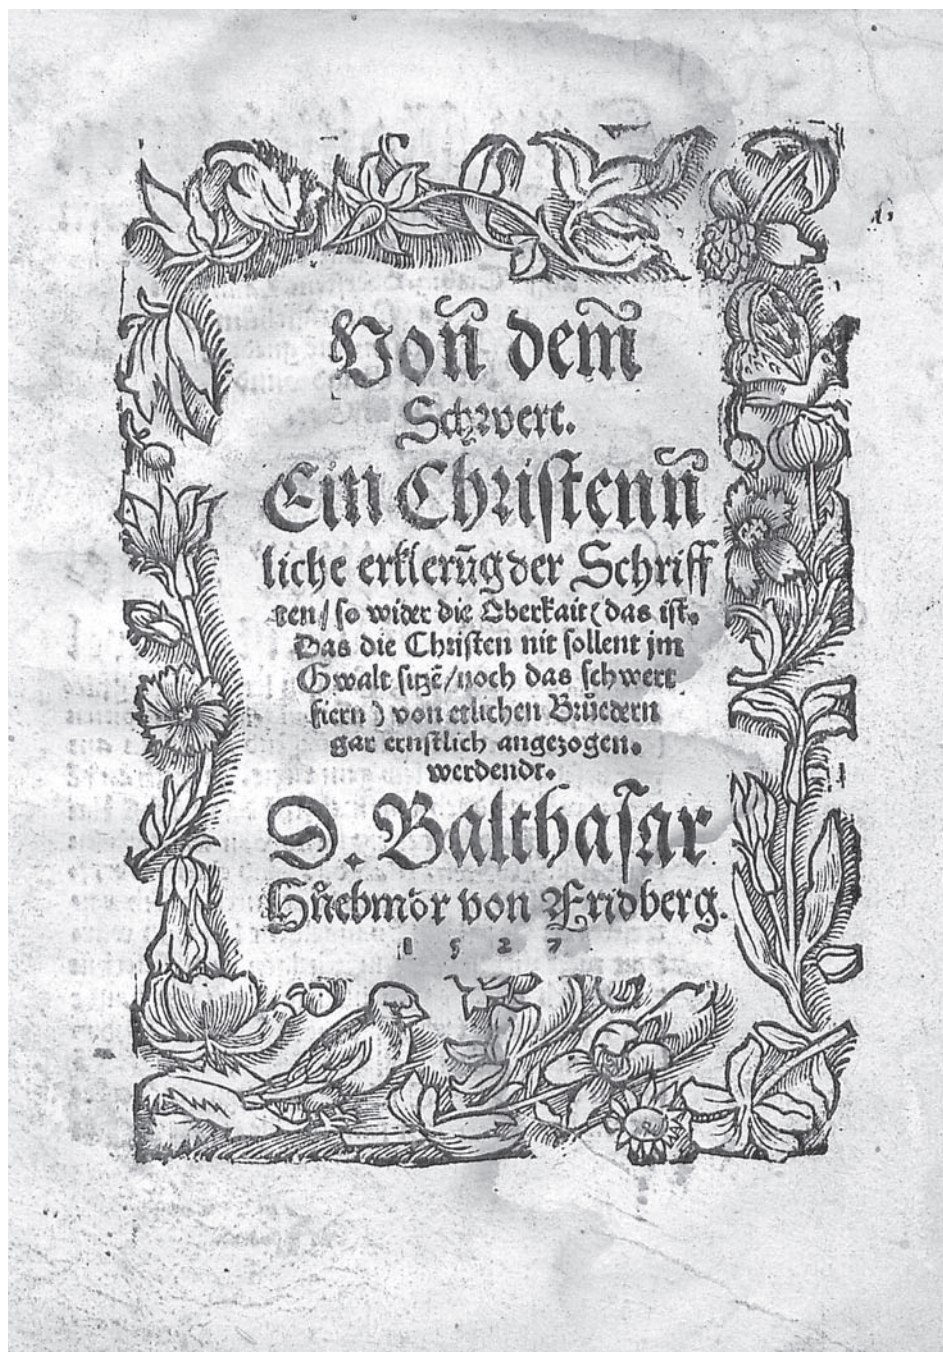 Von̄ dem̄
Schwert.
Ein Christenn̄
liche erklerūg der Schriff
ten / so wider die Oberkait (das ist.
Das die Christen nit sollent jm
Gwalt sitzē / noch das schwert
fiern) von etlichen Brůedern
gar ernstlich angezogen.
werdendt.
D. Balthasar
Hůebmör von Fridberg.
1527